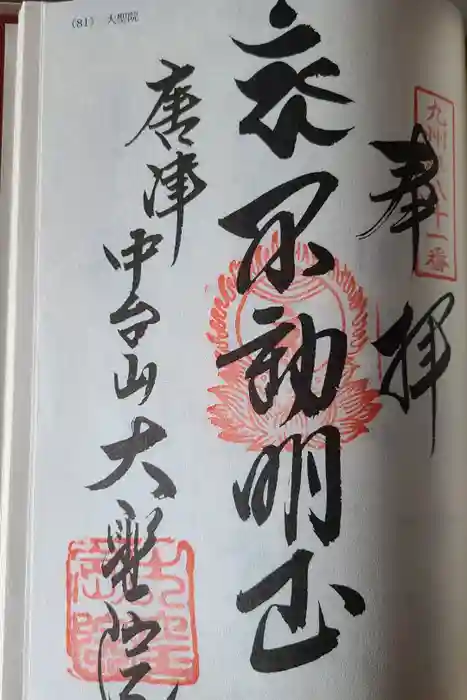 (81) 大聖院
九州八十一番
奉拝
不動明王
唐津中台山大聖院